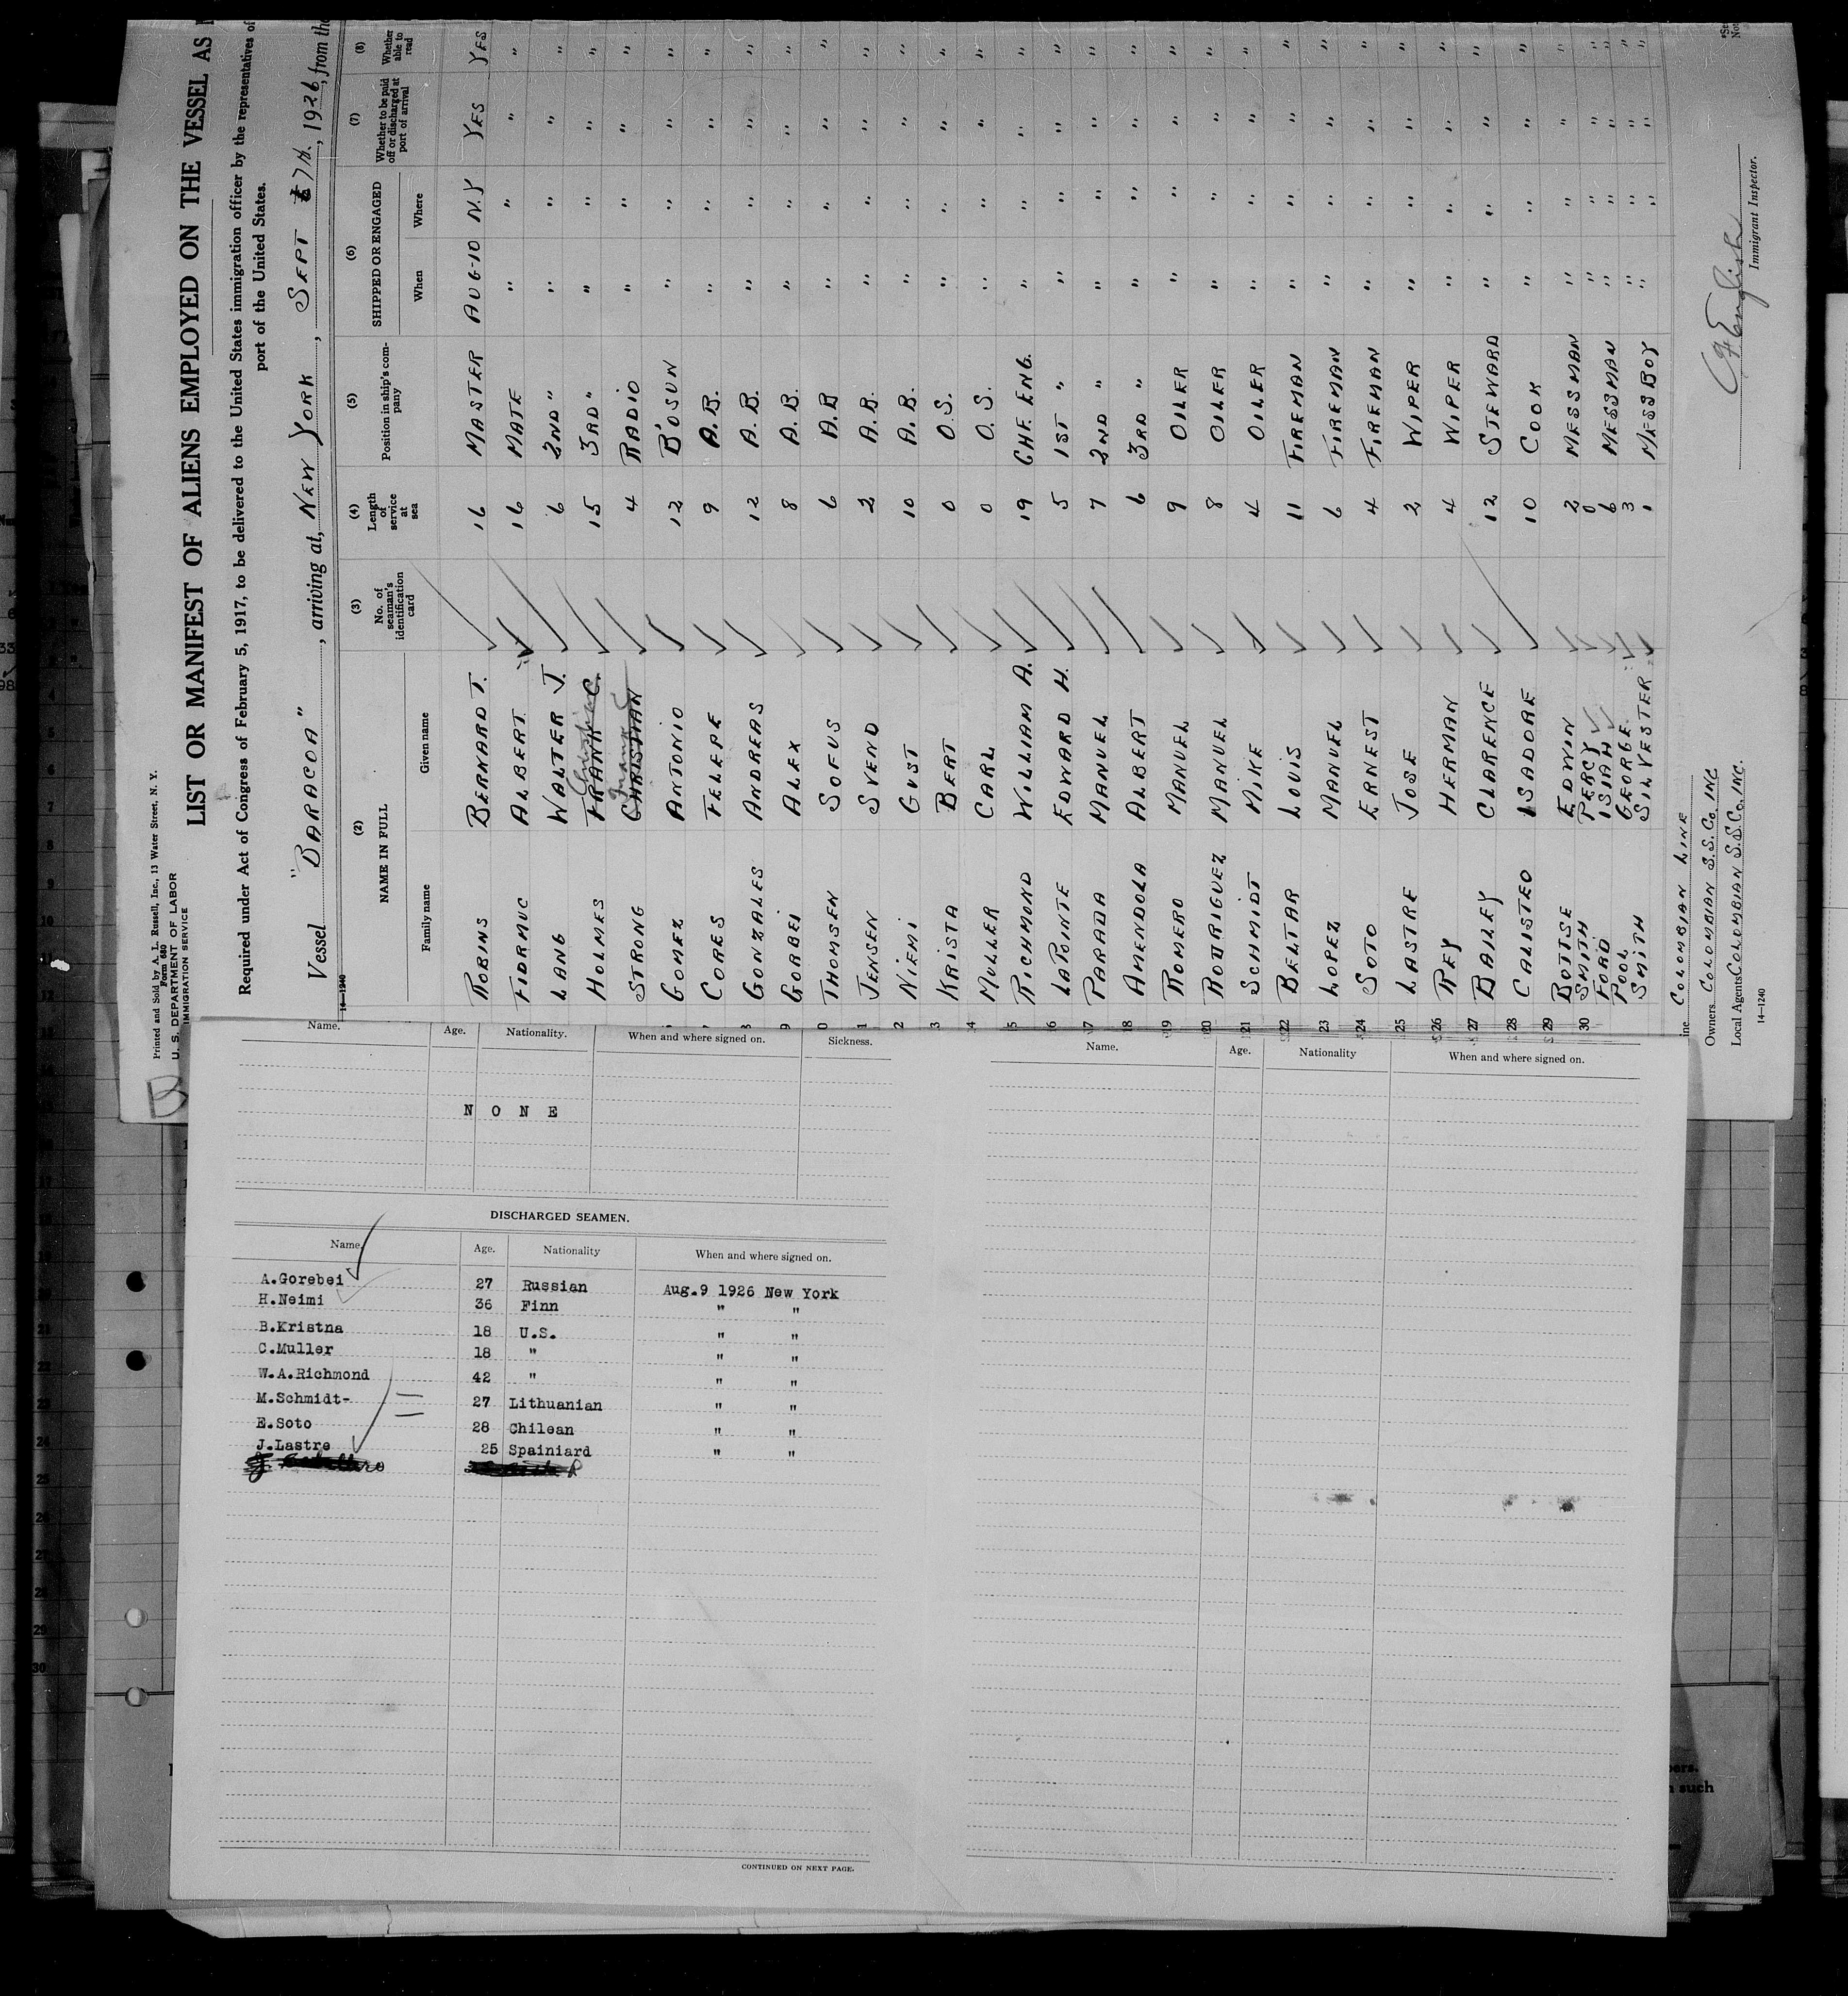 Printed and Sold by A. L. Russell, Inc., 13 Water Street, N. Y.
Form 680
U. S. DEPARTMENT OF LABOR
IMMIGRATION SERVICE
LIST OR MANIFEST OF ALIENS EMPLOYED ON THE VESSEL AS
Required under Act of Congress of February 5, 1917, to be delivered to the United States immigration officer by the representatives of
port of the United States.
Vessel "BARACOA", arriving at, NEW YORK, SEPT 7th, 1926, from the
14-1240
(2) (3) (4) (5) (6) (7) (8)
NAME IN FULL No. of seaman's identification card Length of service at sea Position in ship's company SHIPPED OR ENGAGED Whether to be paid off or discharged at port of arrival Whether able to read
Family name Given name When Where
ROBINS BERNARD T. 16 MASTER AUG-10 N.Y YES YES
FIDRMUC ALBERT 16 MATE " " " "
LANG WALTER J. 6 2ND " " " " "
HOLMES FRANK C. Christian 15 3RD " " " " "
STRONG CHRISTIAN Frank C 4 RADIO " " " "
GOMEZ ANTONIO 12 B'OSUN " " " "
7 CORES FELEPE 9 A.B. " " " "
8 GONZALES ANDREAS 12 A.B. " " " "
9 GORBEI ALEX 8 A.B. " " " "
0 THOMSEN SOFUS 6 A.B " " " "
1 JENSEN SVEND 2 A.B. " " " "
2 NIEMI GUST 10 A.B. " " " "
3 KRISTA BERT 0 O.S. " " " "
4 MULLER CARL 0 O.S. " " " "
5 RICHMOND WILLIAM A. 19 CHF. ENG. " " " "
16 LAPOINTE EDWARD H. 5 1ST " " " " "
17 PARADA MANUEL 7 2ND " " " " "
18 AMENDOLA ALBERT 6 3RD " " " " "
19 ROMERO MANUEL 9 OILER " " " "
20 RODRIGUEZ MANUEL 8 OILER " " " "
21 SCHMIDT MIKE 4 OILER " " " "
22 BELTAR LOUIS 11 FIREMAN " " " "
23 LOPEZ MANUEL 6 FIREMAN " " " "
24 SOTO ERNEST 4 FIREMAN " " " "
25 LASTRE JOSE 2 WIPER " " " "
26 REY HERMAN 4 WIPER " " " "
27 BAILEY CLARENCE 12 STEWARD " " " "
28 CALISTEO ISADORE 10 COOK " " " "
29 BOTTSE EDWIN 2 MESSMAN " " " "
30 SMITH PERCY 0 " " " "
FORD ISIAH 6 MESSMAN " " " "
POOL GEORGE 3 " " " "
SMITH SILVESTER 1 MESSBOY " " " "
Line COLOMBIAN LINE
Owners COLOMBIAN S.S.Co. INC
Local Agents COLOMBIAN S.S.Co. INC.
14-1240
C F English
Immigrant Inspector.
B
Name. Age. Nationality. When and where signed on. Sickness.
NONE
DISCHARGED SEAMEN.
Name. Age. Nationality When and where signed on.
A.Gorebei 27 Russian Aug.9 1926 New York
H.Neimi 36 Finn " "
B.Kristna 18 U.S. " "
C.Muller 18 " " "
W.A.Richmond 42 " " "
M.Schmidt- 27 Lithuanian " "
E.Soto 28 Chilean " "
J.Lastre 25 Spainiard " "
CONTINUED ON NEXT PAGE.
Name. Age. Nationality When and where signed on.
such